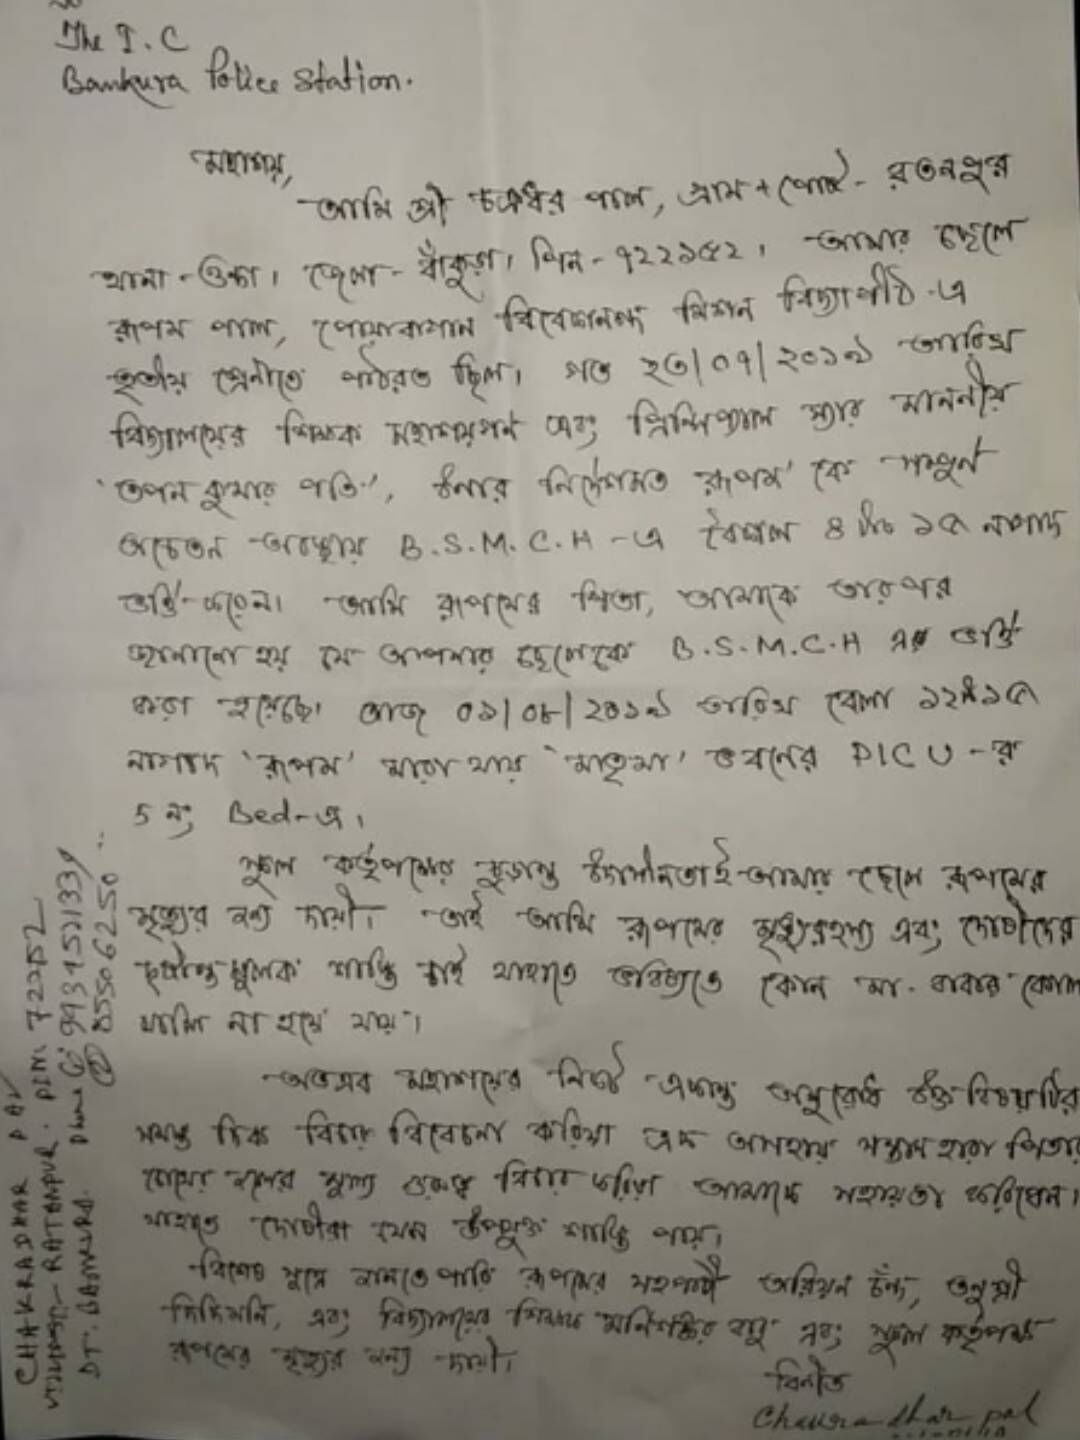 The I.C
Bankura Police Station.
মহাশয়,
আমি শ্রী চক্রধর পাল, গ্রাম + পোষ্ট - রতনপুর
থানা - ওন্দা। জেলা - বাঁকুড়া। পিন - ৭২২১৫২। আমার ছেলে
রূপম পাল, পোয়াবাগান বিবেকানন্দ মিশন বিদ্যাপীঠ-এ
তৃতীয় শ্রেনীতে পাঠরত ছিল। গত ২৩/০৭/২০১৯ তারিখ
বিদ্যালয়ের শিক্ষক মহাশয়গন এবং প্রিন্সিপ্যাল স্যার মাননীয়
'তপন কুমার পতি', উনার নির্দেশমত 'রূপম' কে সম্পুর্ন
অচেতন অবস্থায় B.S.M.C.H - এ বৈকাল ৪ টাঃ ১৫ নাগাদ
ভর্ত্তি করেন। আমি রূপমের পিতা, আমাকে তারপর
জানানো হয় যে আপনার ছেলেকে B.S.M.C.H এর ভর্ত্তি
করা হয়েছে। আজ ০১/০৮/২০১৯ তারিখ বেলা ১২টা১৫
নাগাদ 'রূপম' মারা যায় 'মাতৃমা' ভবনের PICU - র
5 নং Bed-এ।
স্কুল কর্তৃপক্ষের চুড়ান্ত উদাসীনতাই আমার ছেলে রূপমের
মৃত্যুর জন্য দায়ী। তাই আমি রূপমের মৃত্যুরহস্য এবং দোষীদের
দৃষ্টান্তমুলক শাস্তি চাই যাহাতে ভবিষ্যতে কোন মা-বাবার কোল
খালি না হয়ে যায়।
অতএব মহাশয়ের নিকট একান্ত অনুরোধ উক্ত বিষয়টির
সমস্ত দিক বিচার বিবেচনা করিয়া এক অসহায় সন্তানহারা পিতার
চোখের জলের মুল্য বিচার করিয়া আমাকে সহায়তা করিবেন।
যাহাতে দোষীরা যেন উপযুক্ত শাস্তি পায়।
বিশেষ সুত্রে জানতে পারি রূপমের সহপাঠী অরিয়ন চঁন্দ, তনুশ্রী
দিদিমনি, এবং বিদ্যালয়ের শিক্ষক বাবু এবং স্কুল কর্তৃপক্ষ
রূপমের মৃত্যুর জন্য দায়ী।
বিনীত
Chakradhar pal
CHAKRADHAR PAL
RATANPUR. PIN: 722152
DT. BANKURA. Phone ①
②